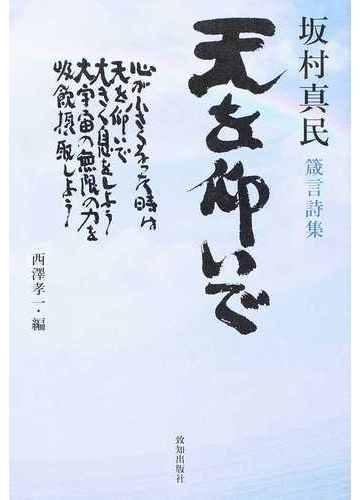 坂村真民
箴言詩集
天を仰いで
心が小さくなった時は
天を仰いで
大きく息をしよう
大宇宙の無限の力を
吸飲摂取しよう
西澤孝一・編
致知出版社